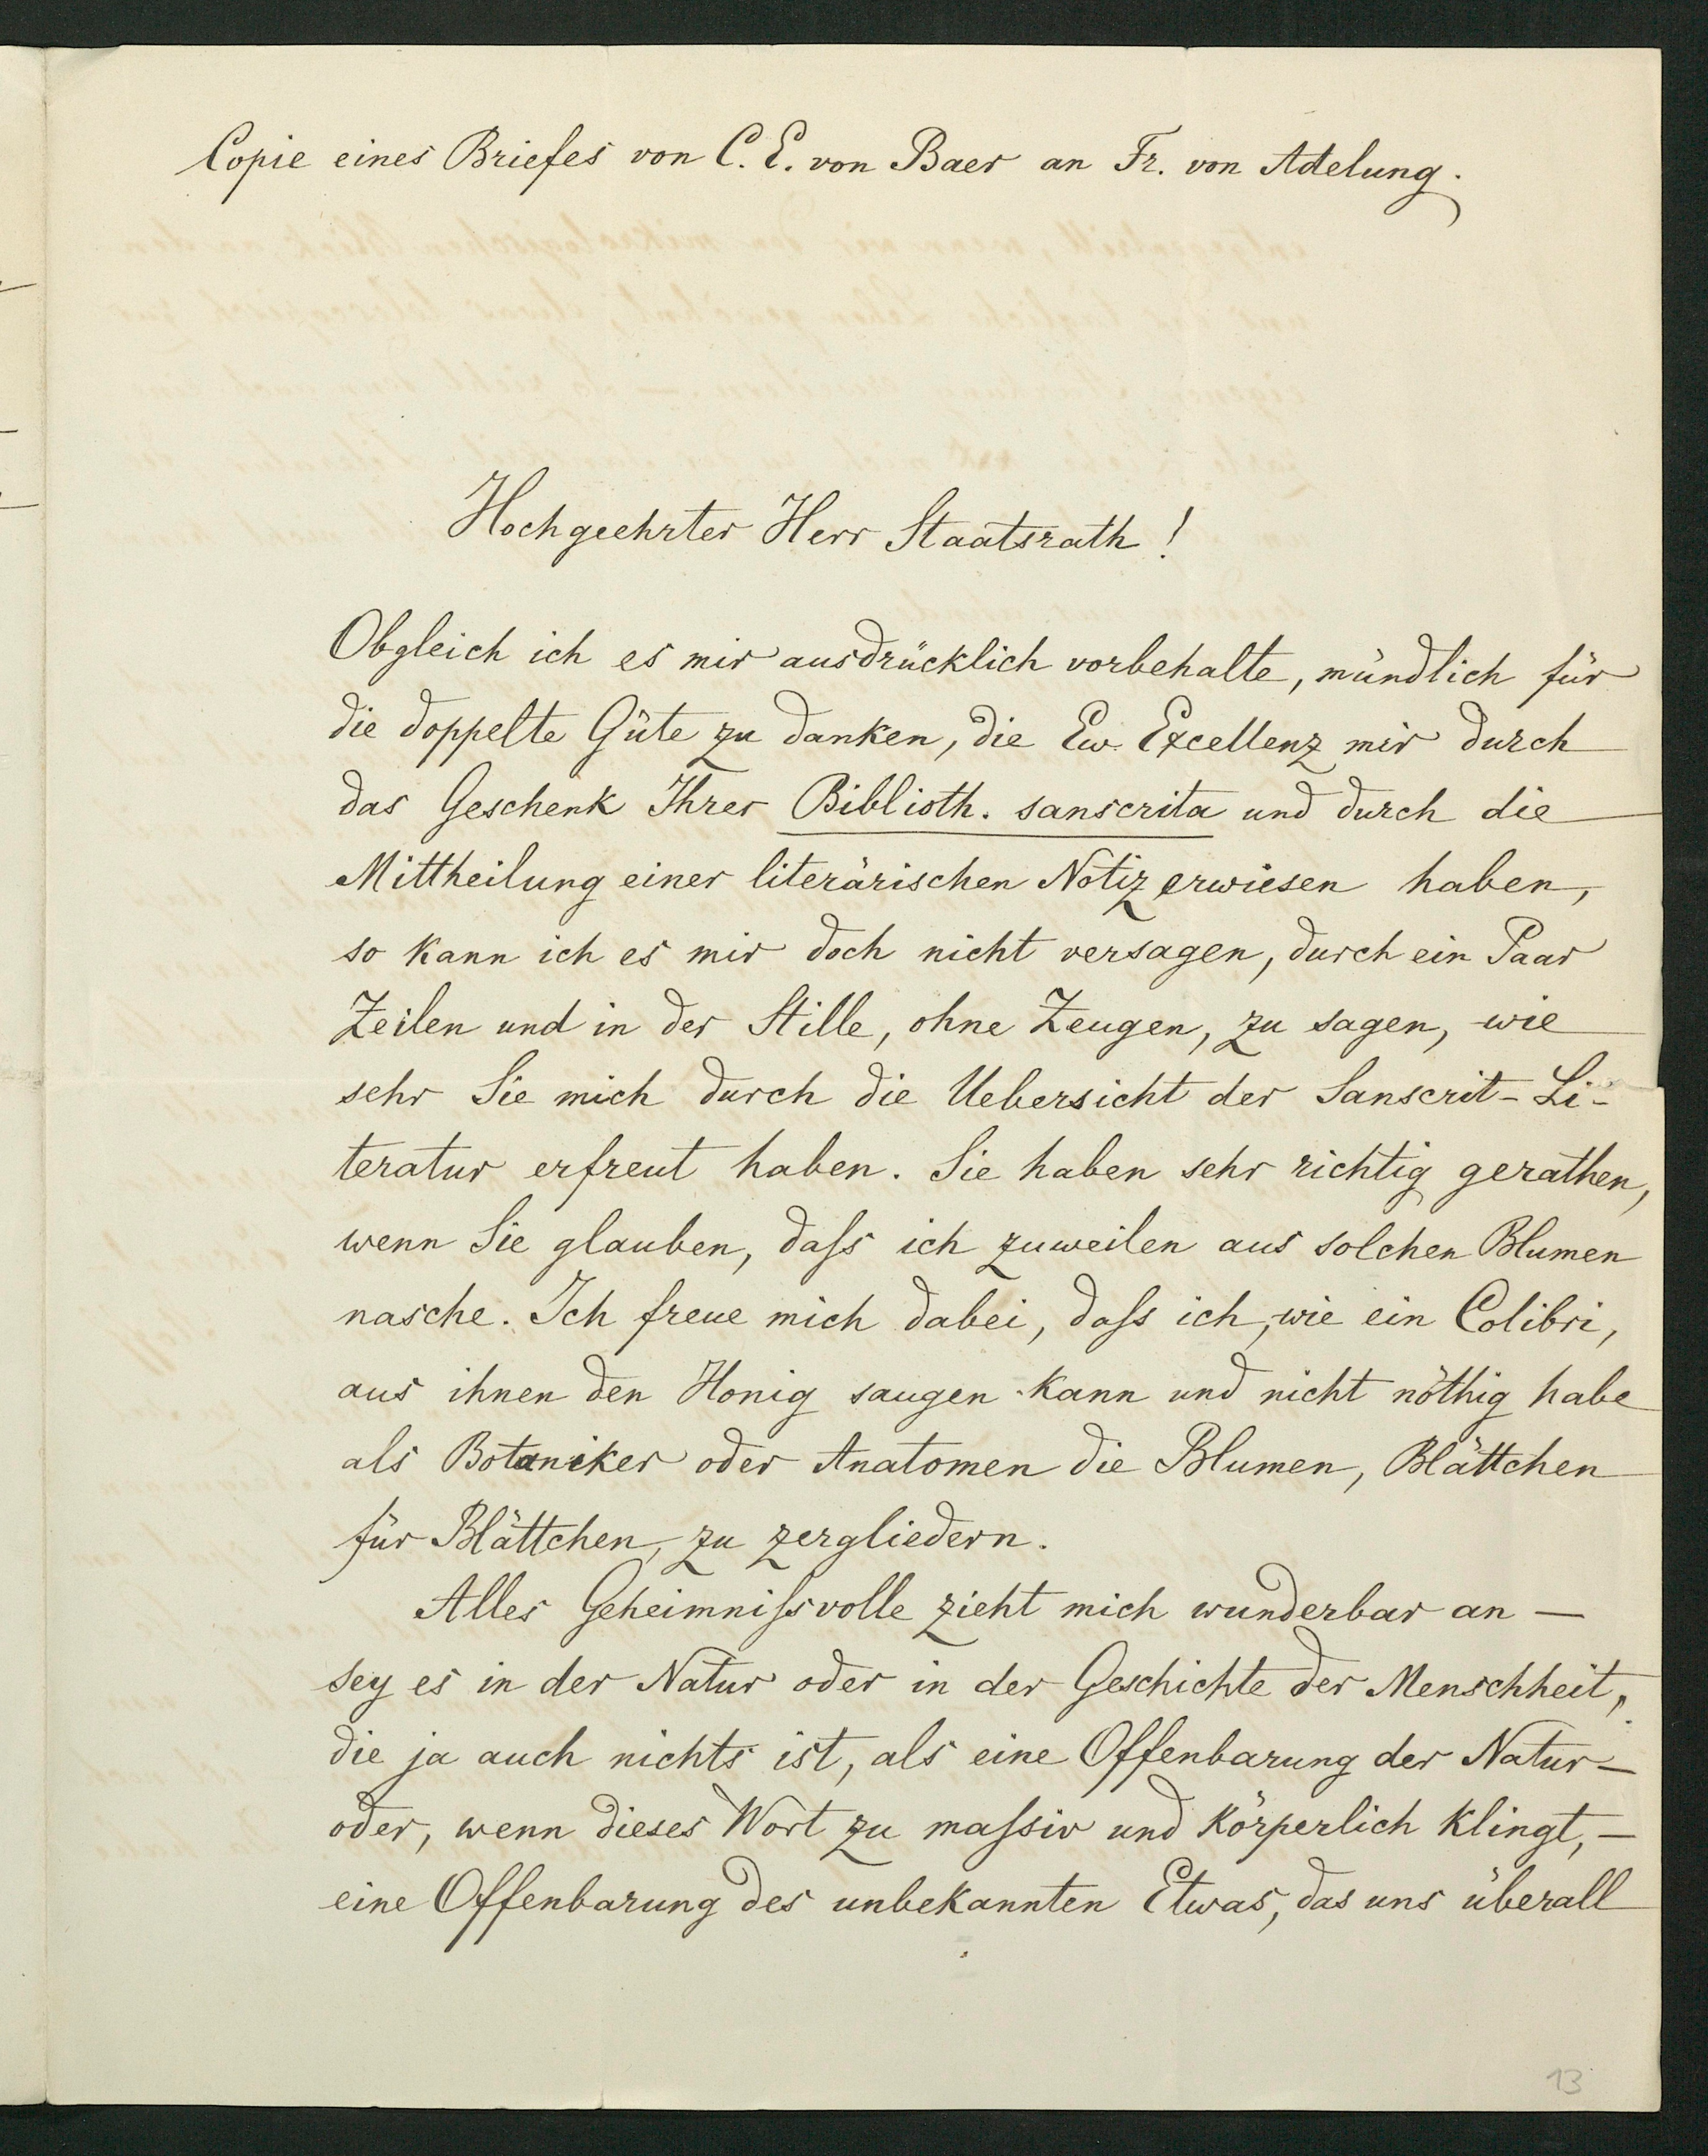 Copie eines Briefes von C. E. von Baer an Fr. von Adelung.
Hochgeehrter Herr Staatsrath!
Obgleich ich es mir ausdrücklich vorbehalte, mündlich für
die doppelte Güte zu danken, die Ew. Excellenz mir durch
das Geschenk Ihrer Biblioth. sanscrita und durch die
Mittheilung einer literärischen Notiz erwiesen haben,
so kann ich es mir doch nicht versagen, durch ein Paar
Zeilen und in der Stille, ohne Zeugen, zu sagen, wie
sehr Sie mich durch die Uebersicht der Sanscrit-Li-
teratur erfreut haben. Sie haben sehr richtig gerathen,
wenn Sie glauben, daſs ich zuweilen aus solchen Blumen
nasche. Ich freue mich dabei, daſs ich, wie ein Colibri,
aus ihnen den Honig saugen kann und nicht nöthig habe
als Botaniker oder Anatomen die Blumen, Blättchen
für Blättchen, zu zergliedern.
Alles Geheimniſsvolle zieht mich wunderbar an —
sey es in der Natur oder in der Geschichte der Menschheit,
die ja auch nichts ist, als eine Offenbarung der Natur —
oder, wenn dieses Wort zu maſsiv und körperlich klingt, —
eine Offenbarung des unbekannten Etwas, das uns überall
13